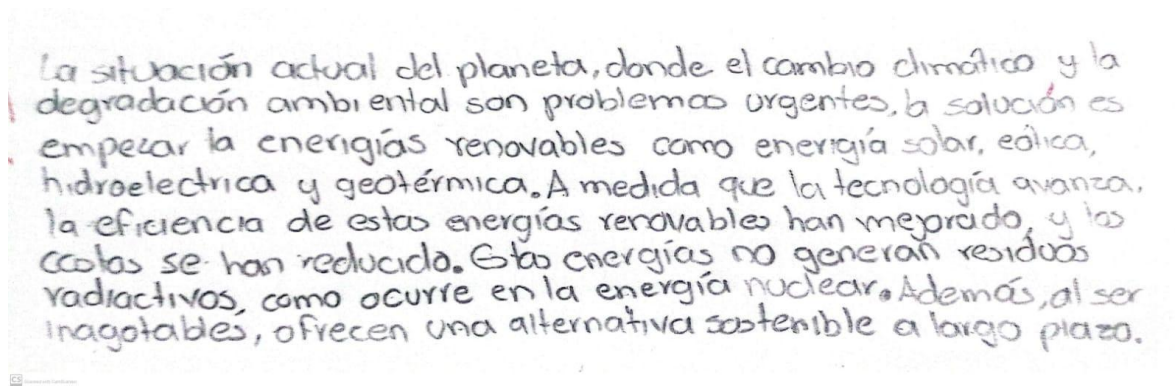 La situación actual del planeta, donde el cambio climático y la
degradación ambiental son problemas urgentes, la solución es
empezar la enerigías renovables como enerigía solar, eólica,
hidroelectrica y geotérmica. A medida que la tecnología avanza,
la eficiencia de estas energías renovables han mejorado, y los
costos se han reducido. Estas energías no generan residuos
radiactivos, como ocurre en la energía nuclear. Además, al ser
inagotables, ofrecen una alternativa sostenible a largo plazo.
CS